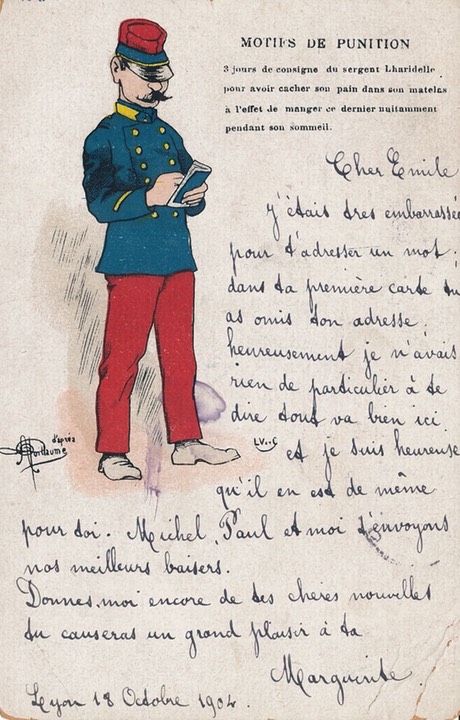 MOTIFS DE PUNITION
3 jours de consigne du sergent Lharidelle
pour avoir cacher son pain dans son matelas
à l'effet de manger ce dernier nuitamment
pendant son sommeil.
Cher Emile
j'étais tres embarrassée
pour t'adresser un mot.
dans ta première carte tu
as omis ton adresse.
heureusement je n'avais
rien de particulier à te
dire tout va bien ici
et je suis heureuse
qu'il en est de même
pour toi. Michel, Paul et moi t'envoyons
nos meilleurs baisers.
Donnes-moi encore de tes chères nouvelles
tu causeras un grand plaisir à ta
Marguerite.
Lyon 18 Octobre 1904.
d'après
Guillaume
LV & C